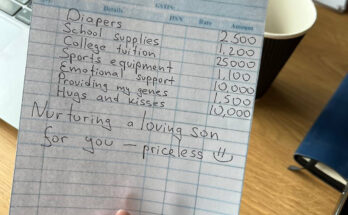 Details
GSTIN:
HSN Rate Amount
Diapers 2,500
School supplies 1,200
College tuition 25000
Sports equipment 1,100
Emotional support 10,000
Providing my genes 1,500
Hugs and kisses 10,000
Nurturing a loving son
for you — priceless